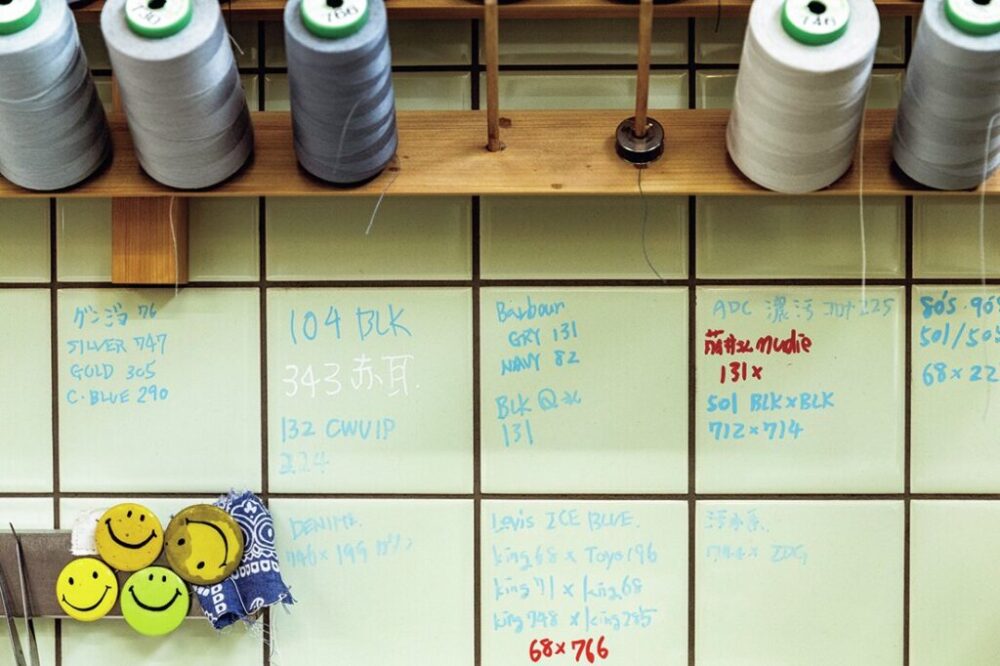 730
766
746
グンジョウ 76
SILVER 747
GOLD 305
C・BLUE 290
104 BLK
343 赤耳.
132 CWUIP
224
Barbour
GRY 131
NAVY 82
BLK
131
ADC 225
mudie
131×
501 BLK×BLK
712×714
80's. 90's
501/50
68×22
DENIME.
Levis ICE BLUE.
king68 × Toyo196
king71 × king68
king248 × king285
68×766